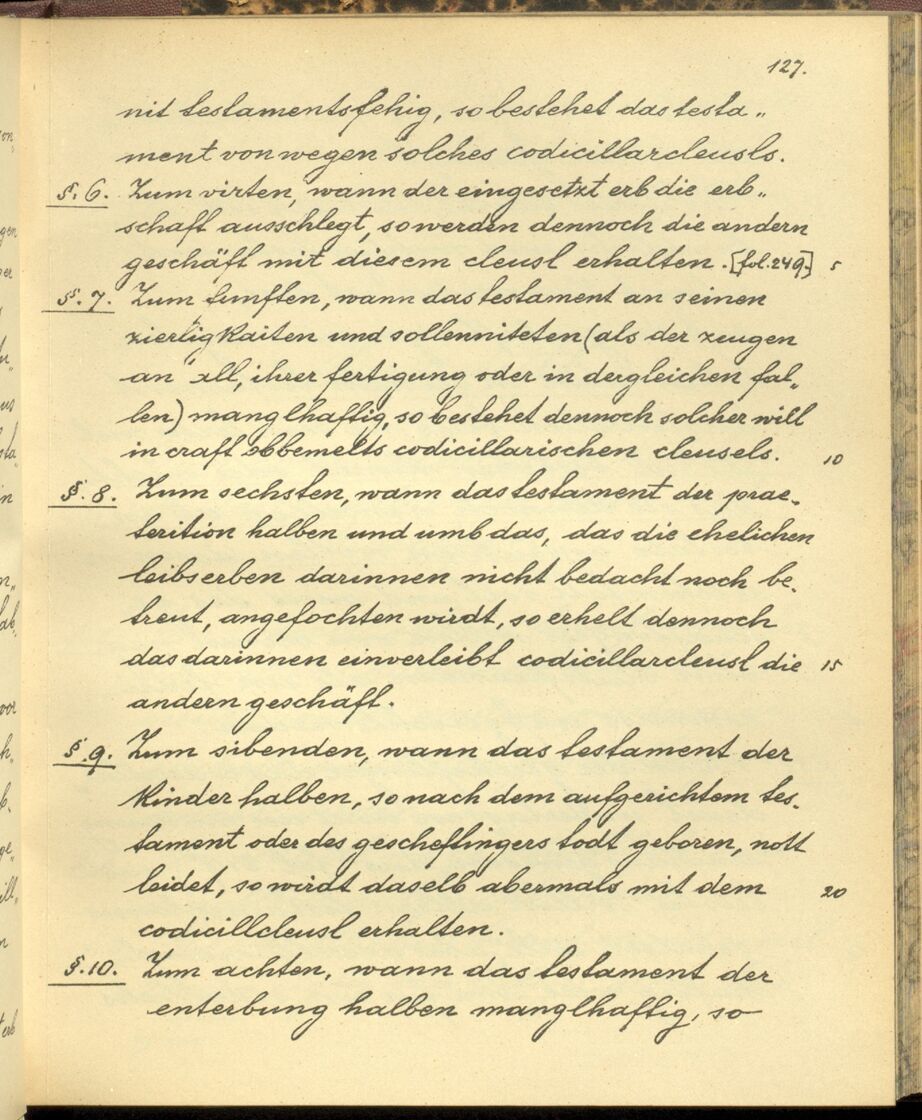 127.
nit testamentsfehig, so bestehet das testa„
ment von wegen solches codicillarcleusls.
§. 6. Zum virten, wann der eingesetzt erb die erb„
schaft ausschlegt, so werden dennoch die andern
geschäft mit diesem cleusl erhalten. [fol. 249.] 5
§. 7. Zum funften, wann das testament an seinen
zierligkaiten und sollenniteten (als der zeugen
an zall, ihrer fertigung oder in dergleichen fal„
len) manglhaftig, so bestehet dennoch solcher will
in craft obbemelts codicillarischen cleusels. 10
§. 8. Zum sechsten, wann das testament der prae„
terition halben und umb das, das die ehelichen
leibserben darinnen nicht bedacht noch be„
treut, angefochten wirdt, so erhelt dennoch
das darinnen einverleibt codicillarcleusl die 15
andern geschäft.
§. 9. Zum sibenden, wann das testament der
kinder halben, so nach dem aufgerichtem tes„
tament oder des gescheftingers todt geboren, nott
leidet, so wirdt daselb abermals mit dem 20
codicillcleusl erhalten.
§. 10. Zum achten, wann das testament der
enterbung halben manglhaftig, so